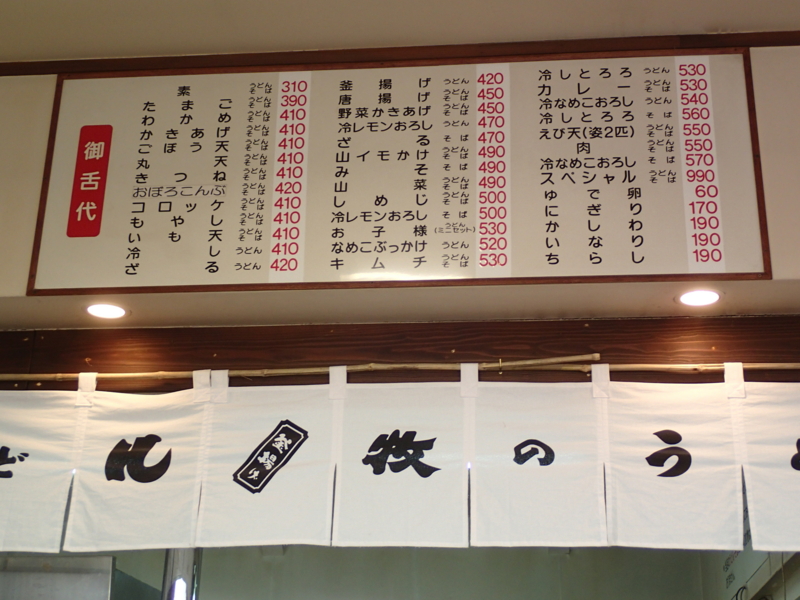 御舌代
素 うどんそば 310
たまご うどんそば 390
わかめ うどんそば 410
かきあげ うどんそば 410
ごぼう天 うどんそば 410
丸天 うどんそば 410
きつね うどんそば 410
おぼろこんぶ うどんそば 420
コロッケ うどんそば 410
もやし うどんそば 410
いも天 うどんそば 410
冷し うどん 410
ざる うどん 420
釜揚げ うどん 420
唐揚げ うどんそば 450
野菜かきあげ うどんそば 450
冷レモンおろし うどん 470
ざる そば 470
山イモかけ うどんそば 490
みそ うどんそば 490
山菜 うどんそば 490
しめじ うどんそば 500
冷レモンおろし そば 500
お子様 うどん(ミニセット) 530
なめこぶっかけ うどん 520
キムチ うどんそば 530
冷しとろろ うどん 530
カレー うどんそば 530
冷なめこおろし うどん 540
冷しとろろ そば 560
えび天(姿2匹) うどんそば 550
肉 うどんそば 550
冷なめこおろし そば 570
スペシャル うどんそば 990
ゆで卵 60
にぎり 170
かしわ 190
いなり 190
ちらし 190
どん 釜揚げ 牧のうど